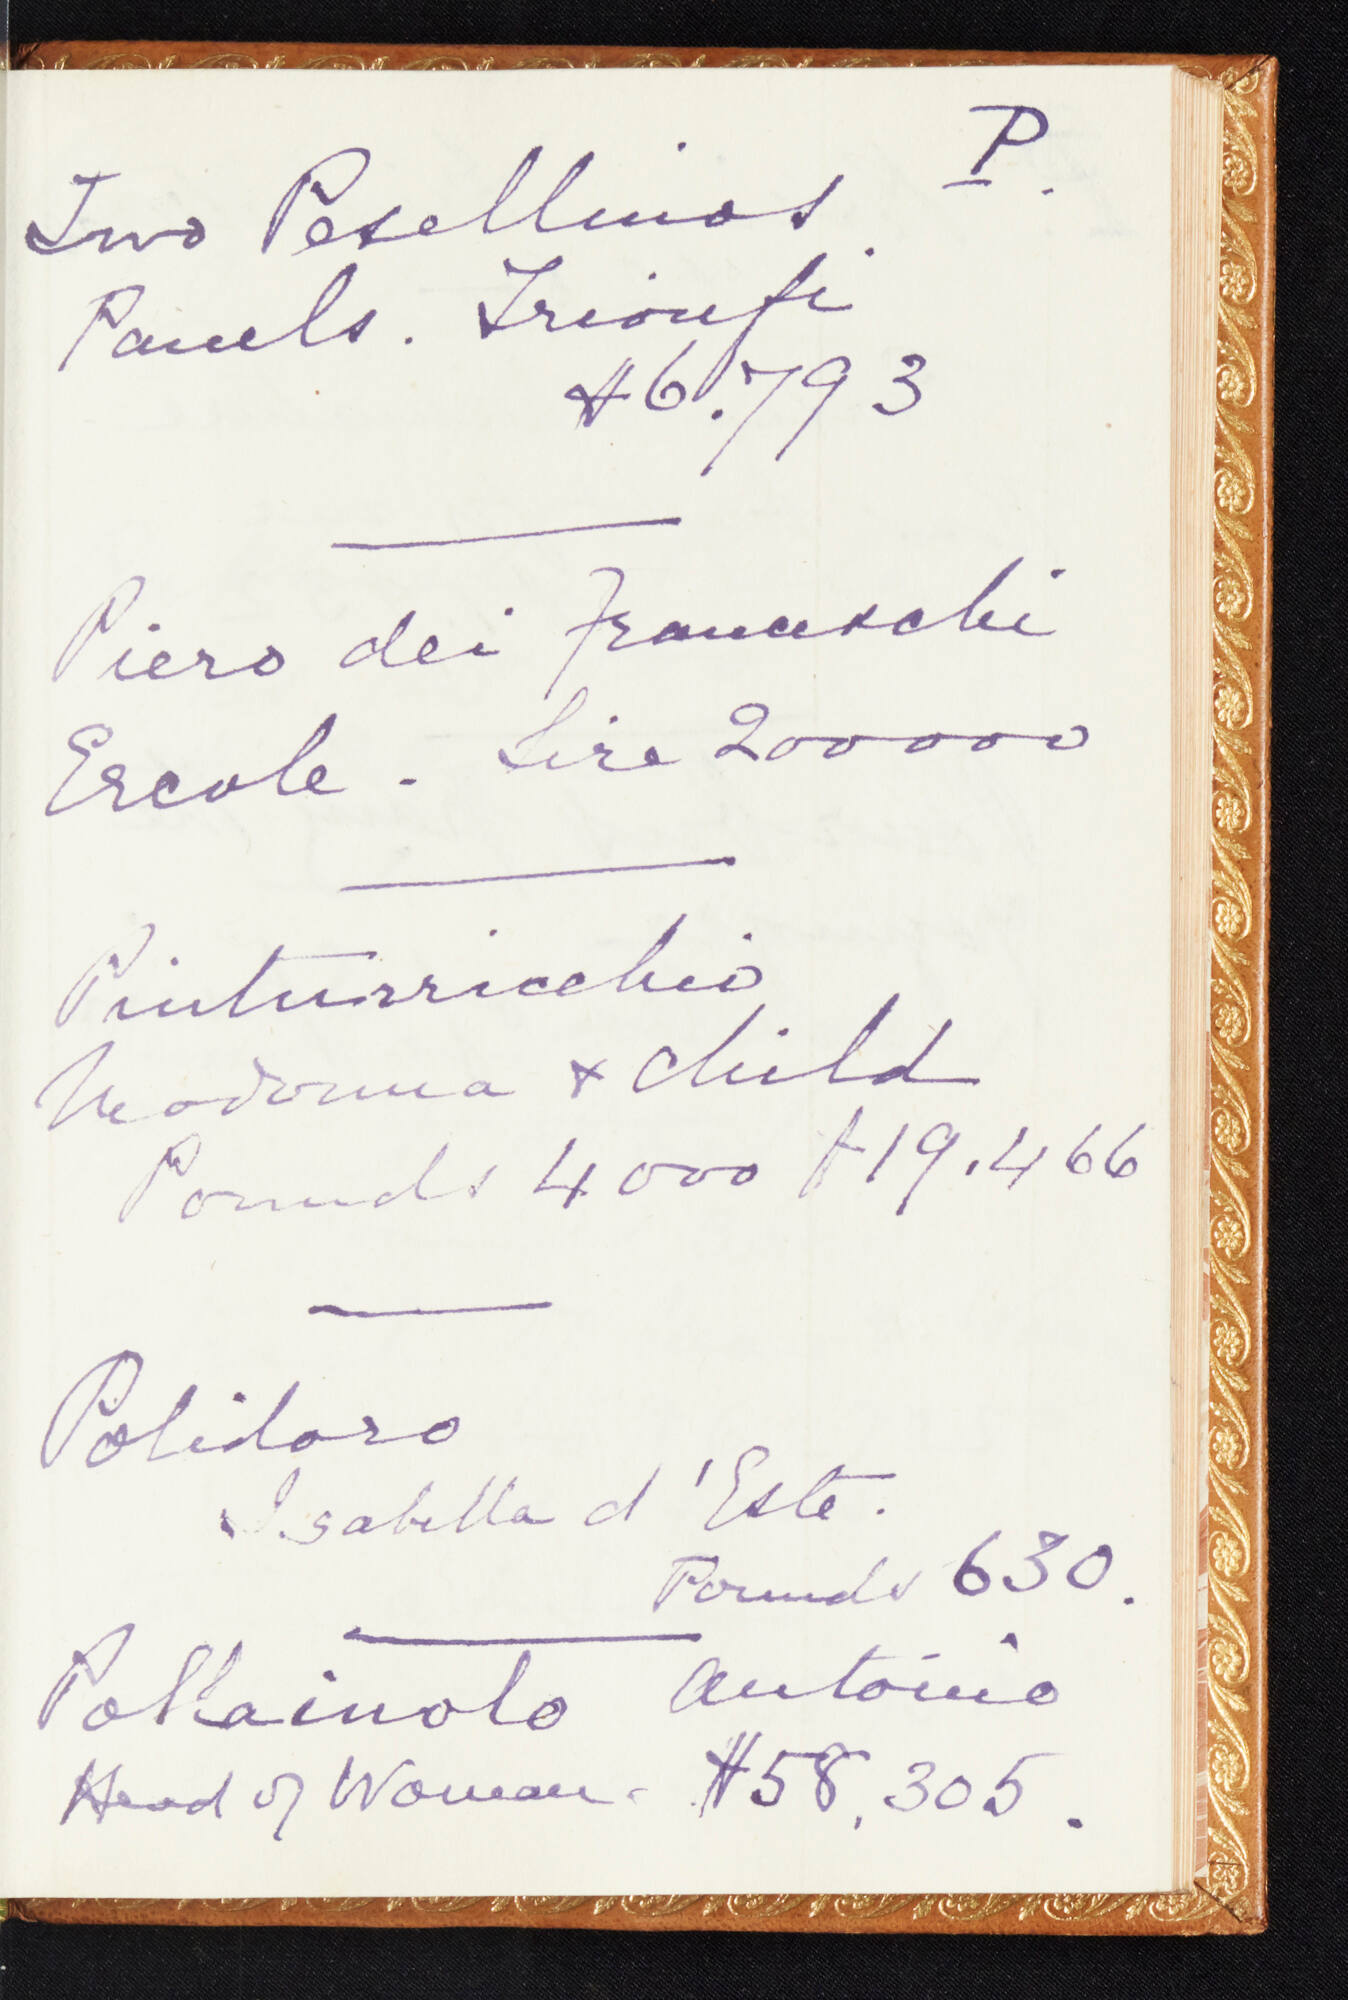 P.
Two Pesellinos.
Panels. Trionfi
$6.793
Piero dei Franceschi
Ercole - Lire 200000
Pinturricchio
Madonna & Child
Pounds 4000 $19.466
Polidoro
Isabella d'Este.
Pounds 630.
Pollainolo Antonio
Head of Woman - $58,305.